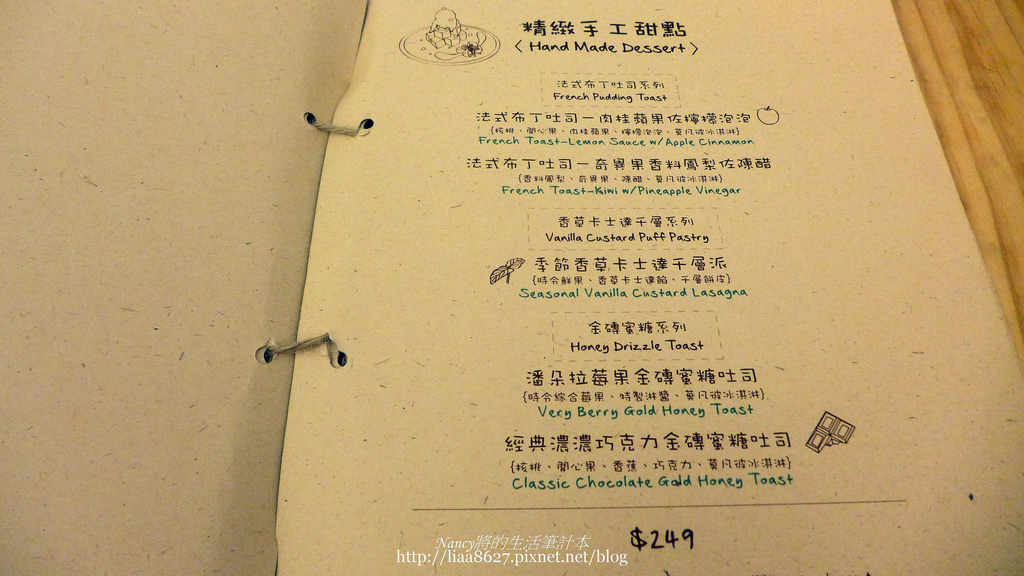 精緻手工甜點
〈 Hand Made Dessert 〉
法式布丁吐司系列
French Pudding Toast
法式布丁吐司－肉桂蘋果佐檸檬泡泡
{核桃、開心果、肉桂蘋果、檸檬泡泡、莫凡彼冰淇淋}
French Toast-Lemon Sauce w/Apple Cinnamon
法式布丁吐司－奇異果香料鳳梨佐陳醋
{香料鳳梨、奇異果、陳醋、莫凡彼冰淇淋}
French Toast-Kiwi w/Pineapple Vinegar
香草卡士達千層系列
Vanilla Custard Puff Pastry
季節香草卡士達千層派
{時令鮮果、香草卡士達餡、千層餅皮}
Seasonal Vanilla Custard Lasagna
金磚蜜糖系列
Honey Drizzle Toast
潘朵拉莓果金磚蜜糖吐司
{時令綜合莓果、特製淋醬、莫凡彼冰淇淋}
Very Berry Gold Honey Toast
經典濃濃巧克力金磚蜜糖吐司
{核桃、開心果、香蕉、巧克力、莫凡彼冰淇淋}
Classic Chocolate Gold Honey Toast
$249
Nancy將的生活筆計本
http://liaa8627.pixnet.net/blog